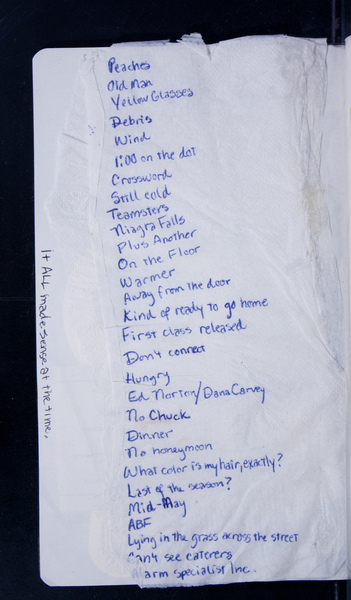 Peaches
Old Man
Yellow Glasses
Debris
Wind
1:00 on the dot
Crossword
Still cold
Teamsters
Niagra Falls
Plus Another
On the Floor
Warmer
Away from the door
Kind of ready to go home
First class released
Don't connect
Hungry
Ed Norton/Dana Carvey
No Chuck
Dinner
No honeymoon
What color is my hair, exactly?
Last of the season?
Mid-May
ABF
Lying in the grass across the street
Can't see caterers
Alarm specialist Inc.
It ALL made sense at the time.